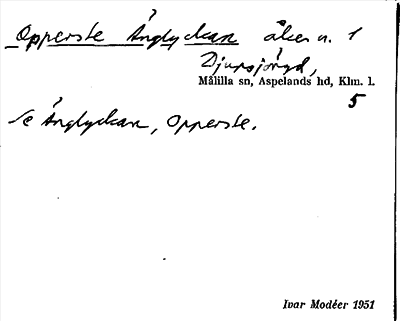 Opperste Änglyckan åker n. 1
Djupsjöryd,
Målilla sn, Aspelands hd, Klm. l.
5
Se Änglyckan, Opperste.
Ivar Modéer 1951